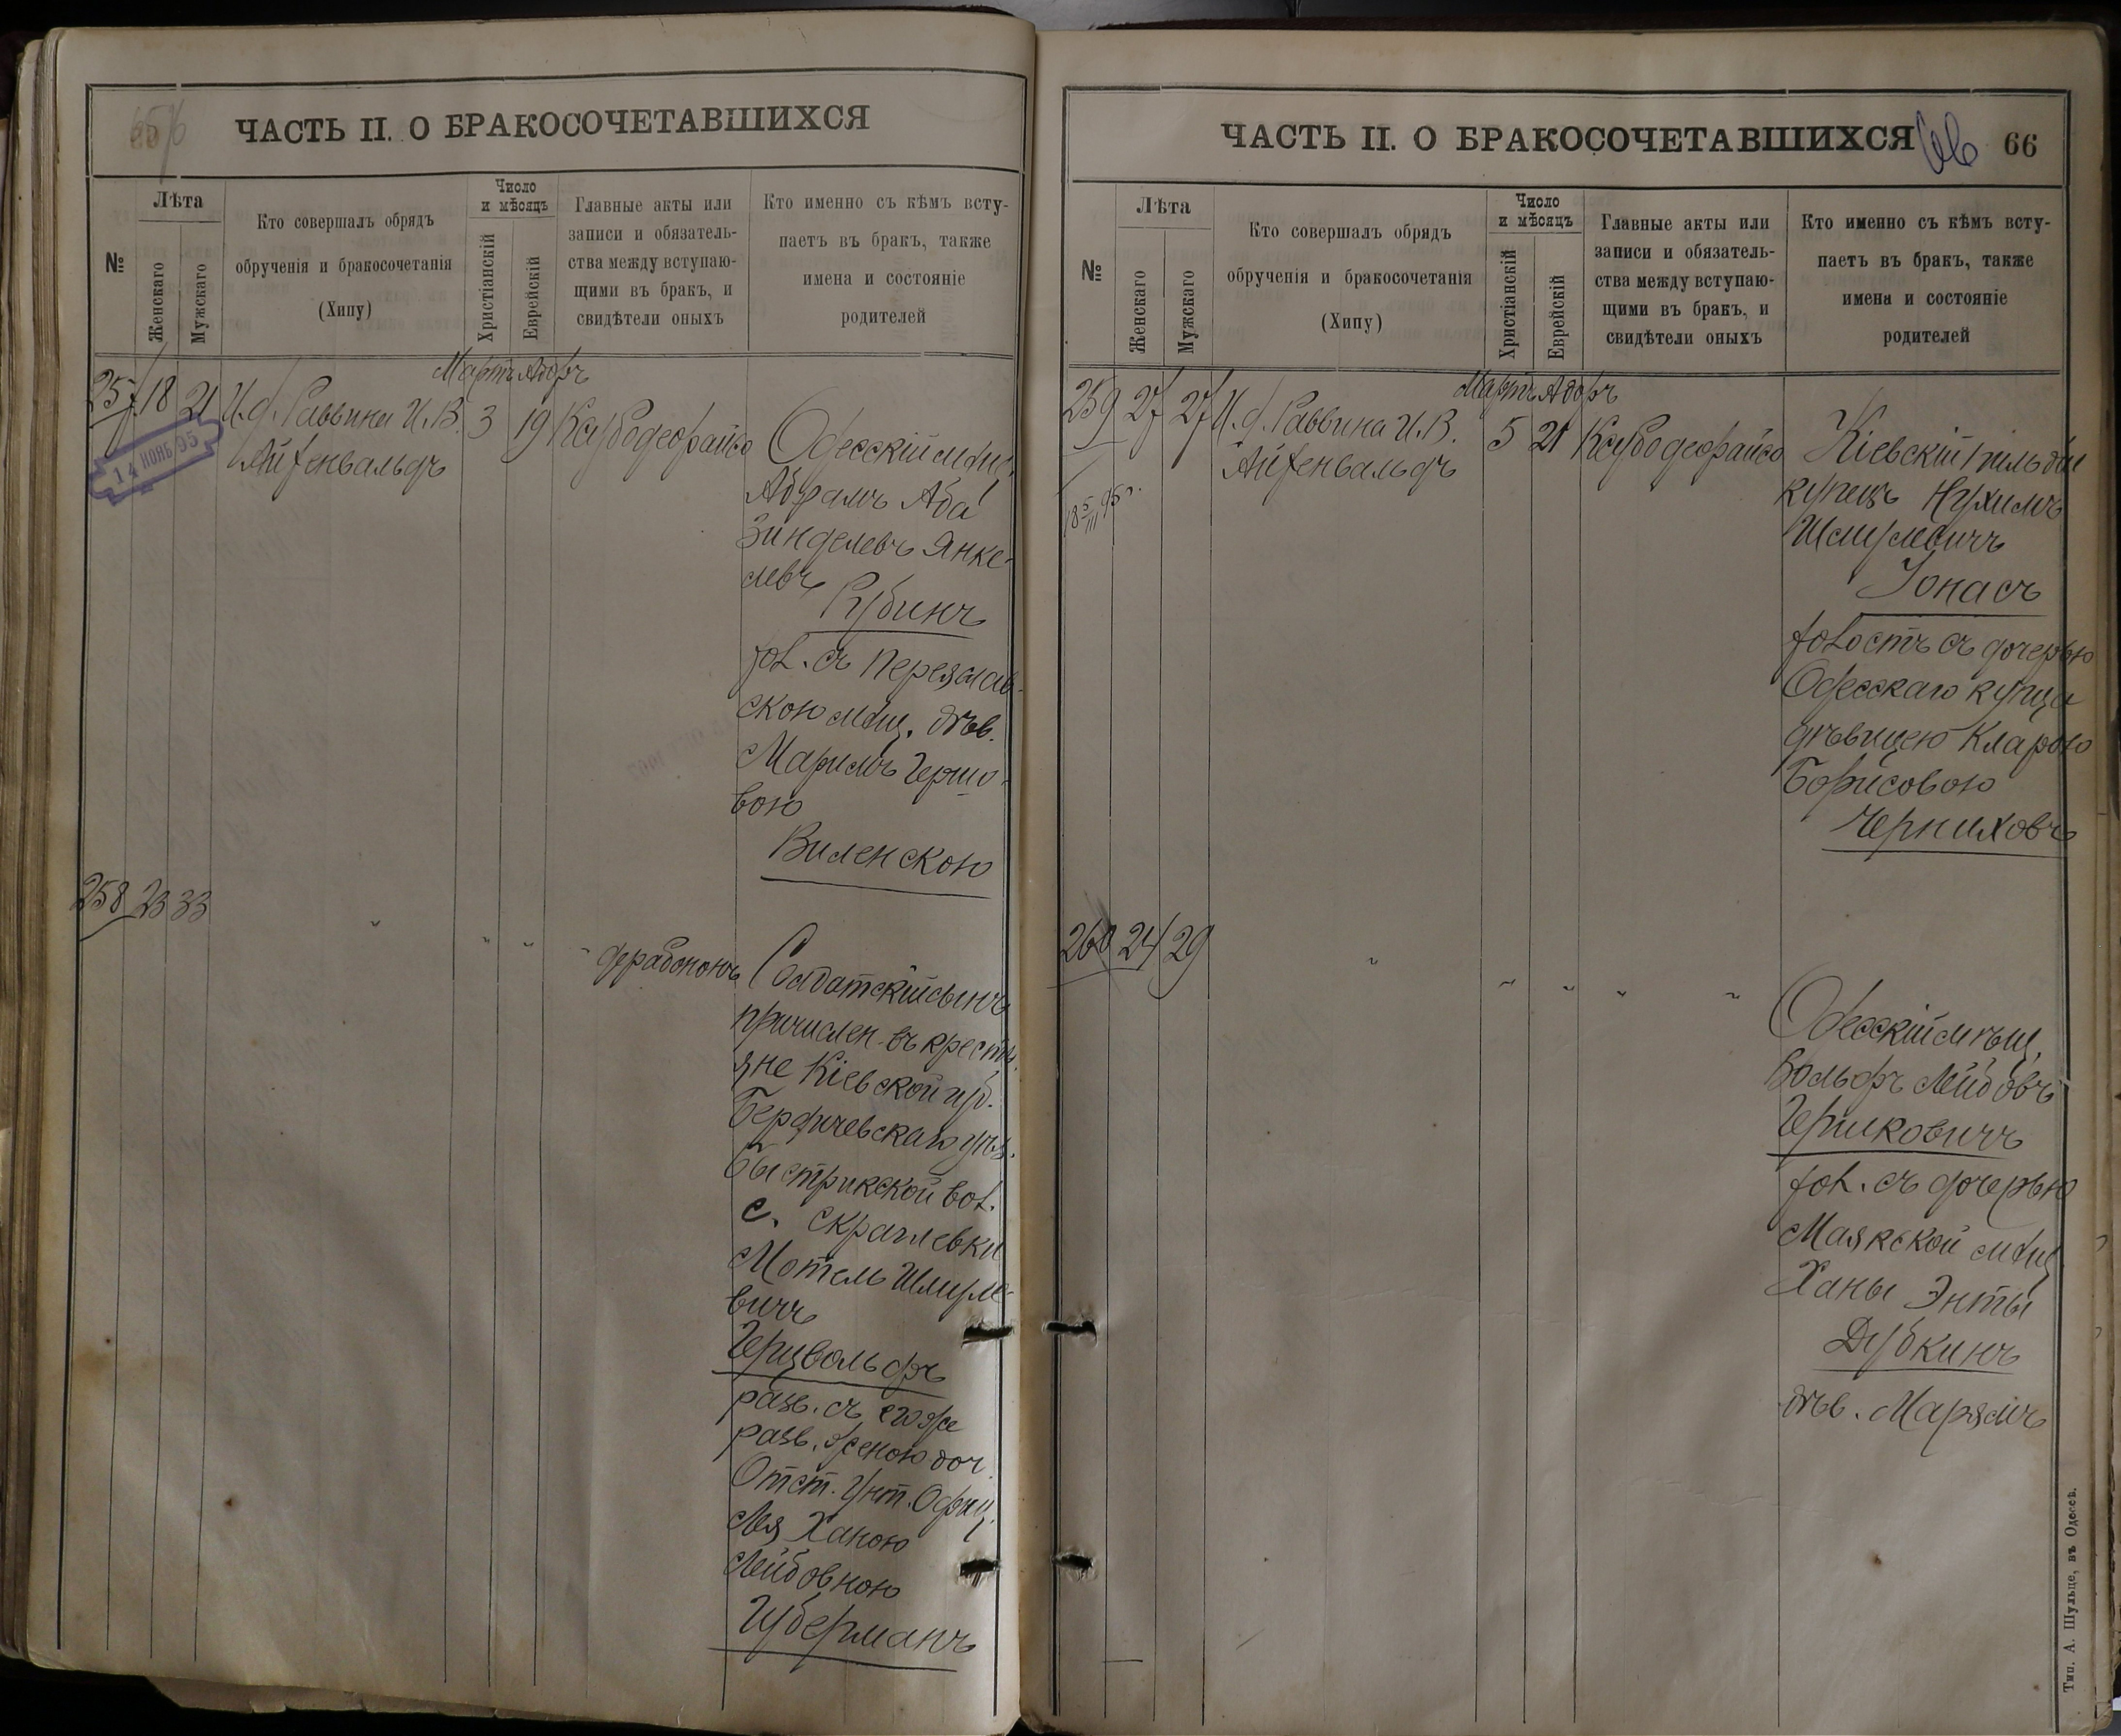 ЧАСТЬ II. О БРАКОСОЧЕТАВШИХСЯ
№
Лѣта
Женскаго
Мужскаго
Кто совершалъ обрядъ
обрученія и бракосочетанія
(Хипу)
Число
и мѣсяцъ
Христіанскій
Еврейскій
Главные акты или
записи и обязатель-
ства между вступаю-
щими въ бракъ, и
свидѣтели оныхъ
Кто именно съ кѣмъ всту-
паетъ въ бракъ, также
имена и состояніе
родителей
Мартъ Адаръ
257 18 21 И.д. Раввина И.В. 3 19
Айзенвальдъ
14 НОЯБ 95
Одесскій мѣщ.
Абрамъ Аба
Зинделевъ Янке-
левъ
Рубинъ
хол. съ Переяслав-
скою мѣщ. дѣв.
Маріямъ Гершо-
вою
Виленскою
258 23 33
Солдатскій сынъ
причислен. въ кресть
яне Кіевской губ.
Бердичевскаго уѣз.
Быстрикской вол.
с. Скраглевки
Мотель Шмуле-
вичъ
Герцвольфъ
разв. съ его же
разв. женою доч.
Отст. Унт. Офиц.
Лея Ханою
Лейбовною
Губерманъ
ЧАСТЬ II. О БРАКОСОЧЕТАВШИХСЯ 66 66
№
Лѣта
Женскаго
Мужскаго
Кто совершалъ обрядъ
обрученія и бракосочетанія
(Хипу)
Число
и мѣсяцъ
Христіанскій
Еврейскій
Главные акты или
записи и обязатель-
ства между вступаю-
щими въ бракъ, и
свидѣтели оныхъ
Кто именно съ кѣмъ всту-
паетъ въ бракъ, также
имена и состояніе
родителей
Мартъ Адаръ
259 27 27 И.д. Раввина И.В. 5 21
Айзенвальдъ
18 5/III 95 г.
Кіевскій 1 гильдіи
купецъ Нухимъ
Шмулевичъ
Іонасъ
холостъ съ дочерью
Одесскаго купца
дѣвицею Кларою
Борисовою
Черниховъ
260 24 29
Одесскій мѣщ.
Вольфъ Лейбовъ
Гершковичъ
хол. съ дочерью
Маякской мѣщ.
Ханы Энты
Дубкинъ
дѣв. Марямъ
Тип. А. Шульце, въ Одессѣ.